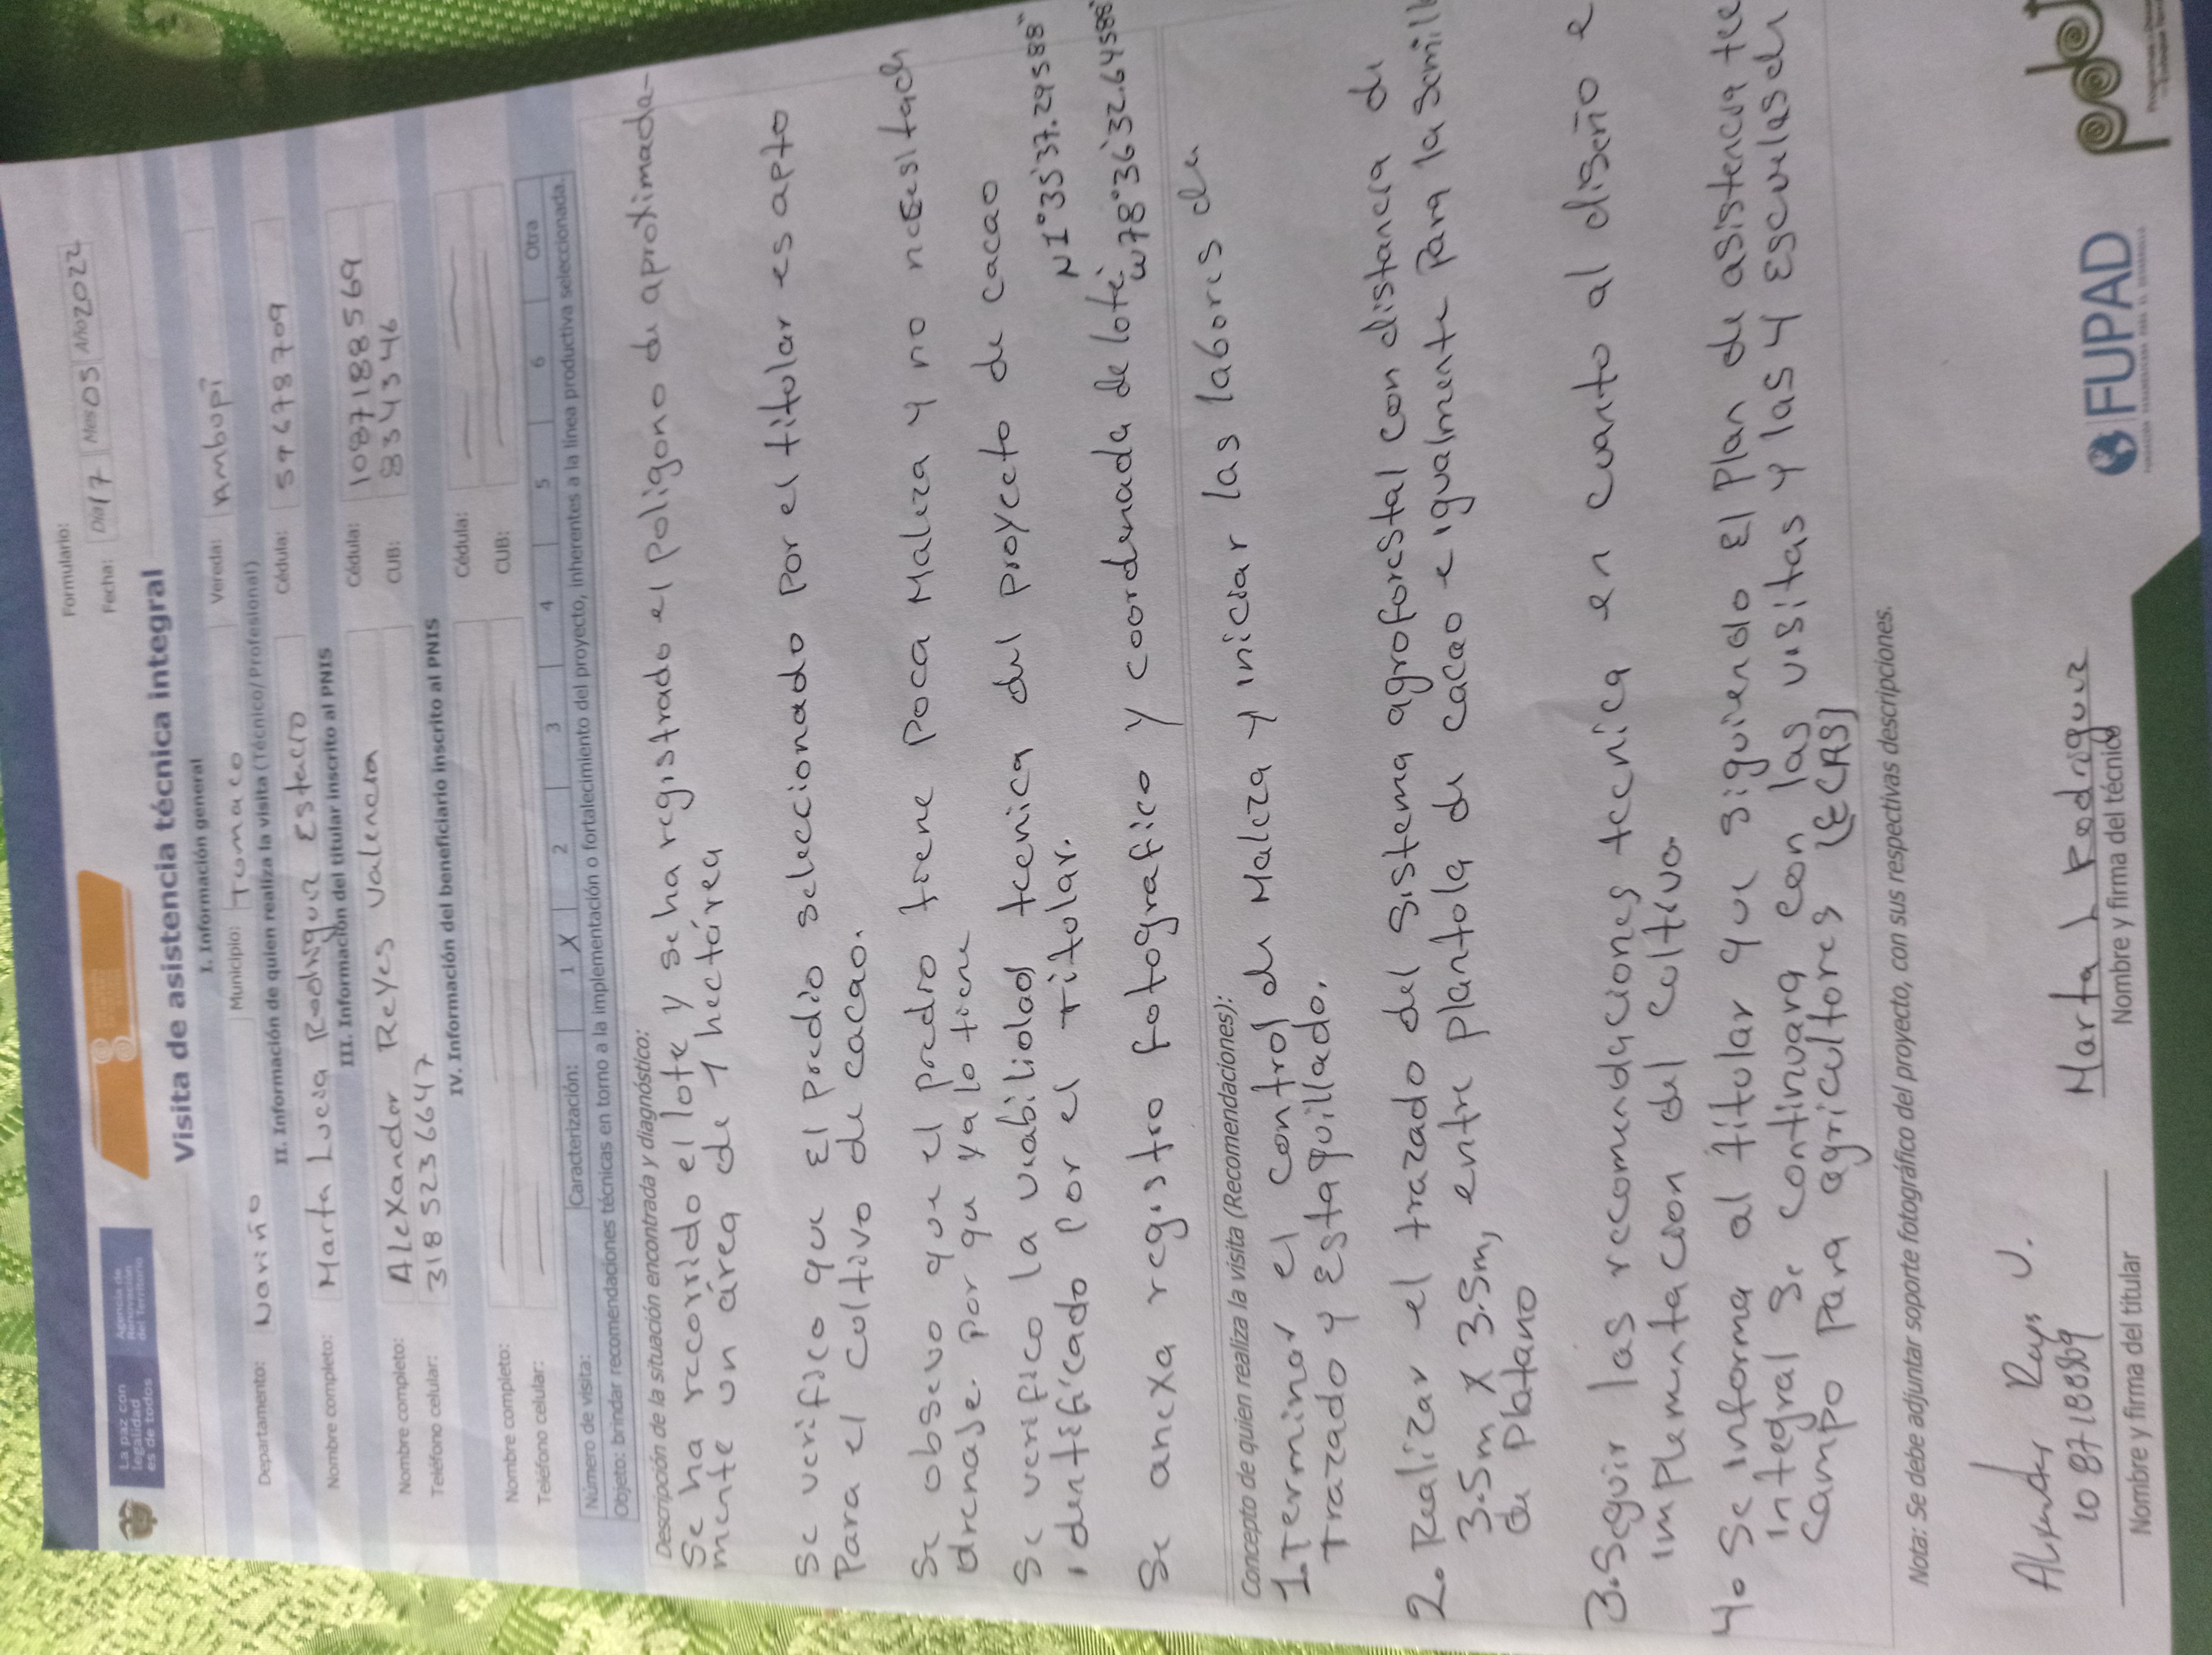 La paz con
legalidad
es de todos
Agencia de
Renovación
del Territorio
Formulario:
Fecha: Dia17 Mes 03 Año2022
Visita de asistencia técnica integral
I. Información general
Departamento: Nariño Municipio: Tumaco Vereda: Ambupi
II. Información de quien realiza la visita (Técnico/Profesional)
Nombre completo: Marta Lucia Rodriguez Estacio Cédula: 59678709
III. Información del titular inscrito al PNIS
Nombre completo: AleXander Reyes Valencia Cédula: 1087188569
Teléfono celular: 3185236647 CUB: 834346
IV. Información del beneficiario inscrito al PNIS
Nombre completo: Cédula:
Teléfono celular: CUB:
Número de visita: Caracterización: 1 X 2 3 4 5 6 Otra
Objeto: brindar recomendaciones técnicas en torno a la implementación o fortalecimiento del proyecto, inherentes a la línea productiva seleccionada.
Descripción de la situación encontrada y diagnóstico:
Se ha recorrido el lote y se ha registrado el Poligono de aproximada-
mente un área de 1 hectárea
Se verifico que El Predio seleccionado por el titular es apto
Para el cultivo de cacao.
Se obsevo que el predro tiene Poca Maleza y no necesitach
drenaje. por qu ya lo tiene
Se verifico la viabilidad tecnica del proyecto de cacao
identificado por el titular. N1°35'37.29588"
Se anexa registro fotografico y coordenada de lote: W78°36'32.64588"
Concepto de quien realiza la visita (Recomendaciones):
1. Terminar el control de Maleza y iniciar las labores de
Trazado y Estaquillado.
2. Realizar el trazado del sistema agroforestal con distancia de
3.5m X 3.5m, entre plantola de cacao e igualmente Para la semill
de Platano
3. Seguir las recomendaciones tecnica en cuanto al diseño e
implementacion del cultivo.
4. Se informa al titular que siguiendo El Plan de asistencia tec
integral Se continuara con las visitas y las 4 Escuelas de
campo para agricultores (ECAS)
Nota: Se debe adjuntar soporte fotográfico del proyecto, con sus respectivas descripciones.
Alexander Reyes V.
1087188569
Nombre y firma del titular
Marta L Rodriguez
Nombre y firma del técnico
FUPAD
pdet